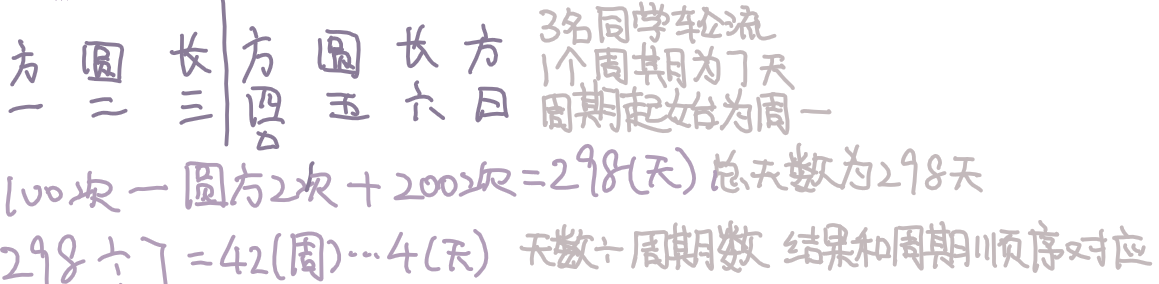 方 圆 长 方 圆 长 方
一 二 三 四 五 六 日
3名同学轮流
1个周期为7天
周期起始为周一
100次一圆方2次+200次=298(天) 总天数为298天
298÷7=42(周)…4(天) 天数÷周期数 结果和周期顺序对应